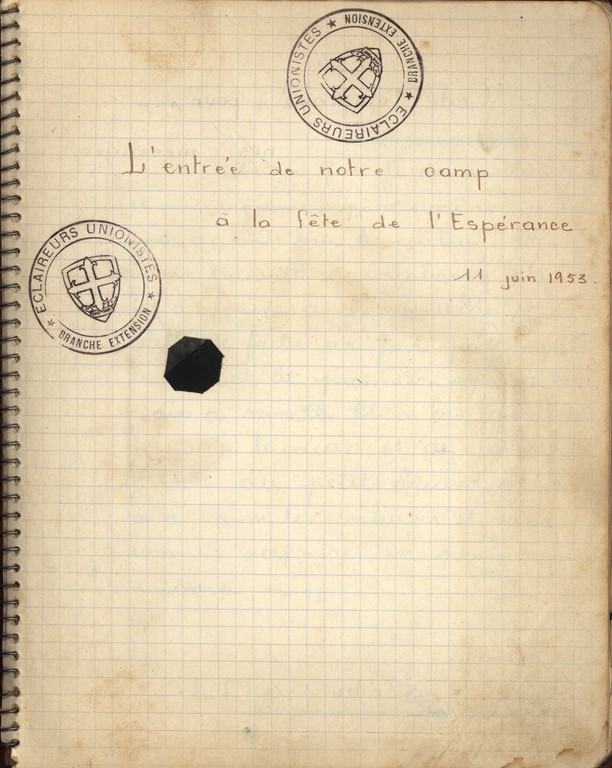 ECLAIREURS UNIONISTES ★ BRANCHE EXTENSION ★
L'entrée de notre camp
à la fête de l'Espérance
11 juin 1953.
ECLAIREURS UNIONISTES ★ BRANCHE EXTENSION ★